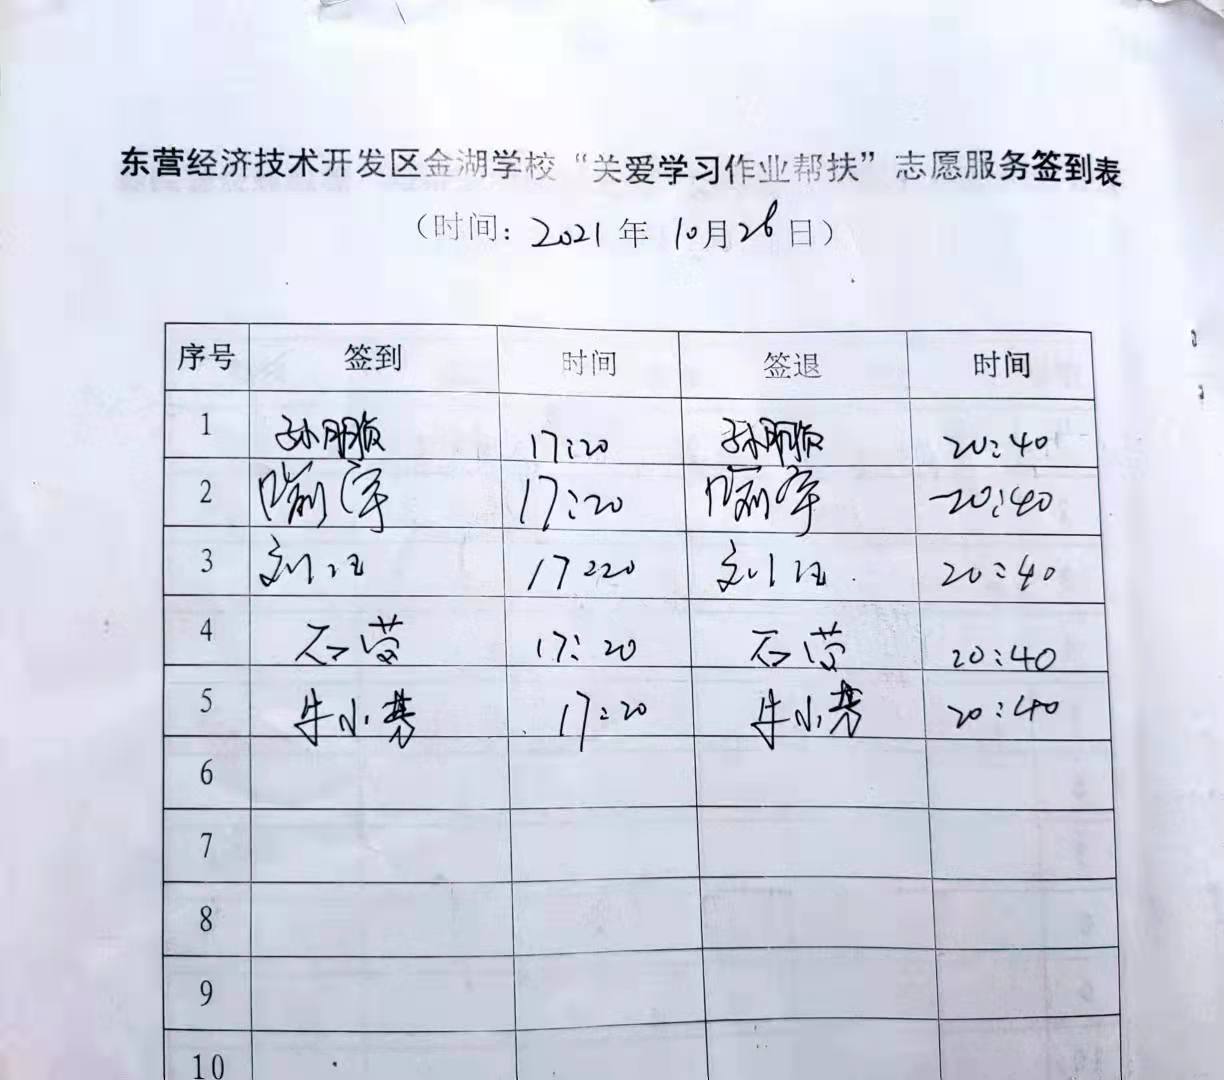 东营经济技术开发区金湖学校“关爱学习作业帮扶”志愿服务签到表
（时间：2021年10月26日）
序号 签到 时间 签退 时间
1 17:20 20:40
2 17:20 20:40
3 刘江 17:20 刘江 20:40
4 石莹 17:20 石莹 20:40
5 牛小芳 17:20 牛小芳 20:40
6
7
8
9
10